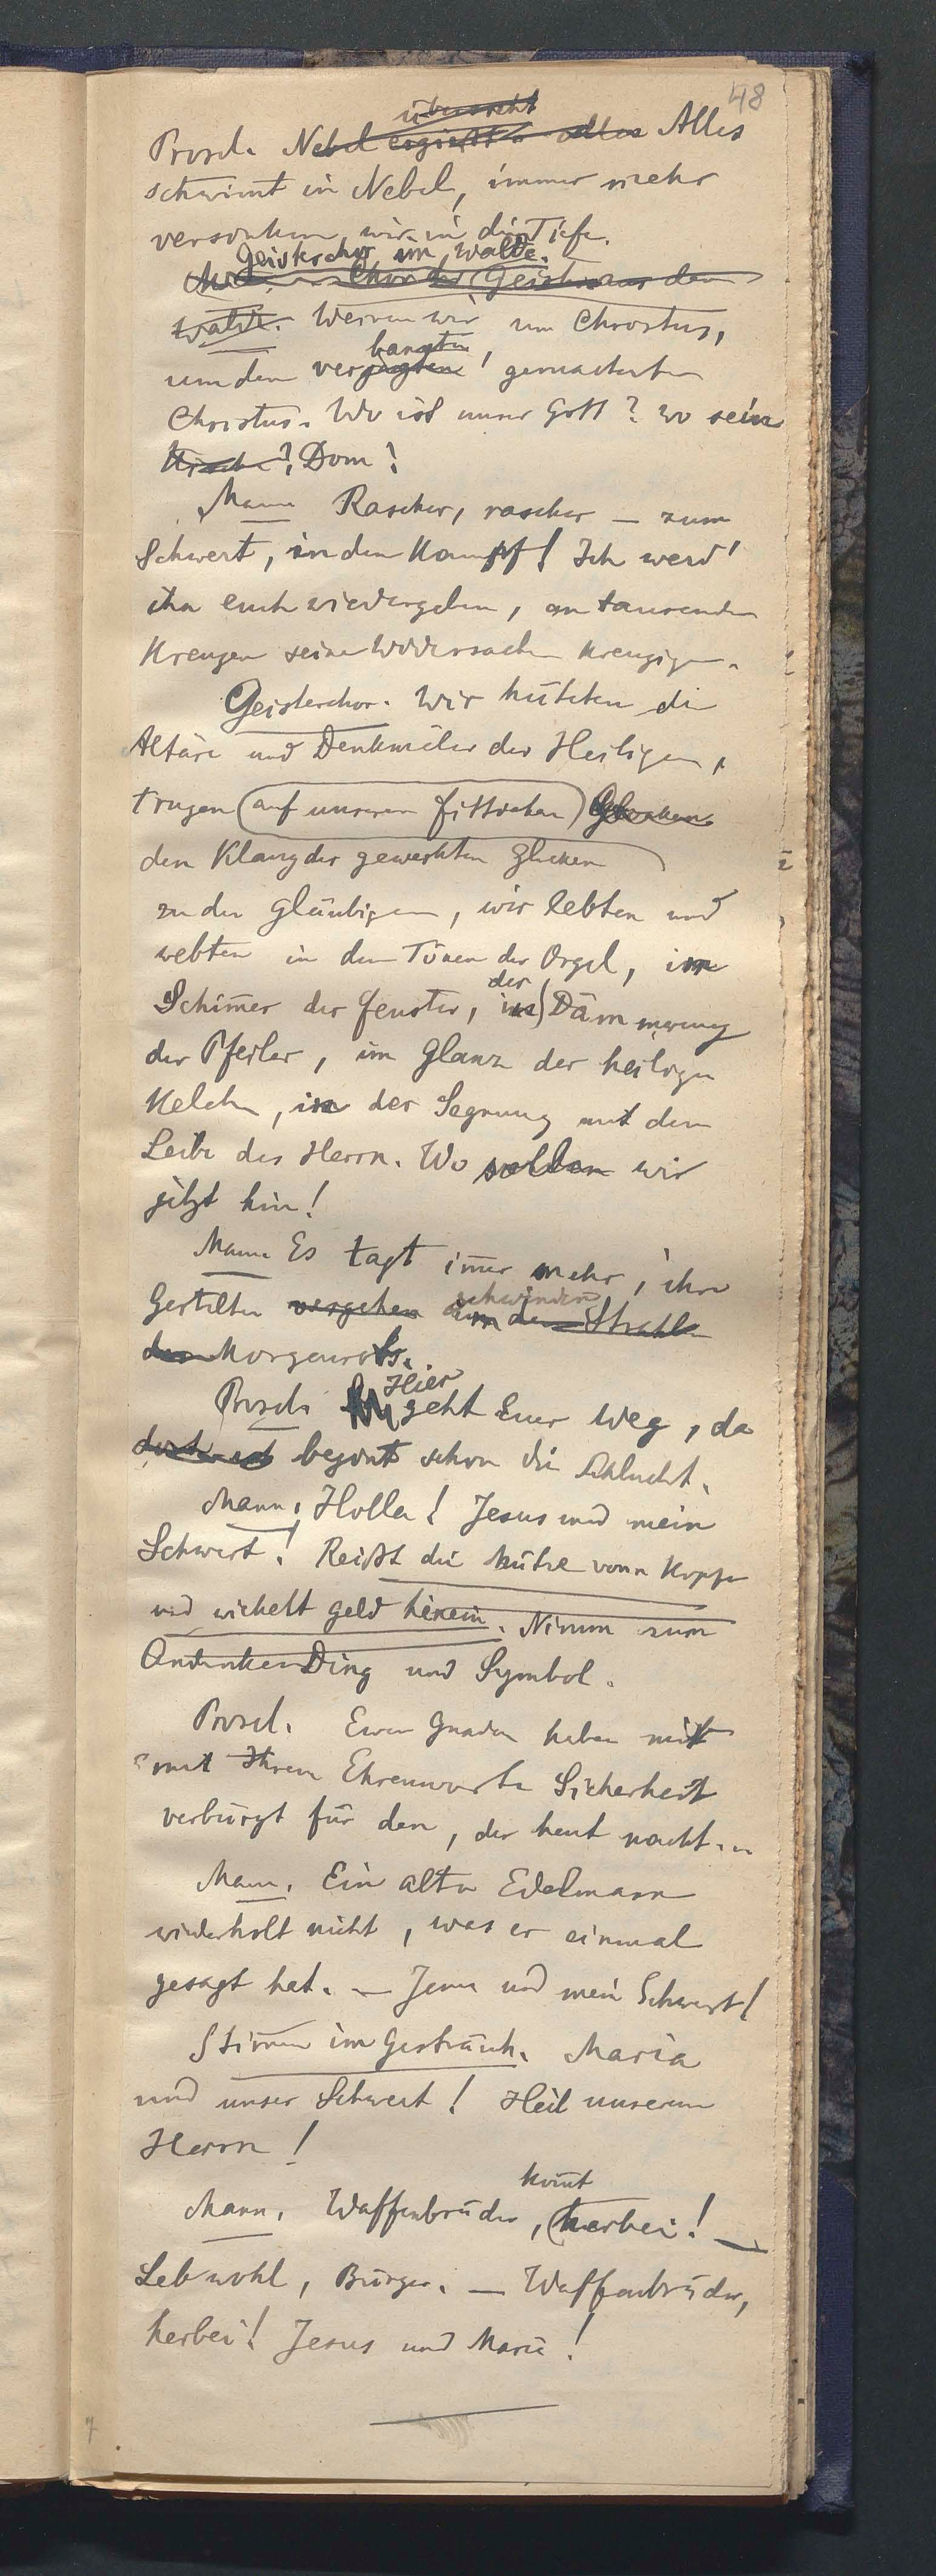 48
überzieht
Prosel. Nebel ergießt alles Alles
schwimt in Nebel, immer mehr
versinken wir in die Tiefe.
Geisterchor im Walde.
Chor der Geister aus dem
Walde. Weinen wir um Christus,
bangten,
um den verjagten! gemarterten
Christus. Wo ist unser Gott? wo sein
Kirche? Dom?
Mann Rascher, rascher — zum
Schwert, in den Kampf! Ich werd'
ihn euch wiedergeben, an tausenden
Kreuzen seine Widersacher kreuzigen.
Geisterchor. Wir hüteten die
Altäre und Denkmäler der Heiligen,
trugen (auf unseren Fittichen) Glocken
den Klang der geweihten Glocken
zu den Gläubigen, wir lebten und
webten in den Tönen der Orgel, im
der
Schimmer der Fenster, in Dämmerung
der Pfeiler, im Glanz der heiligen
Kelche, in der Segnung mit dem
Leibe des Herrn. Wo sollen wir
jetzt hin!
Mann Es tagt immer mehr, ihre
schwinden
Gestalten vergehen im den Strahle
des Morgenrots.
Hier
Prosel. geht Euer Weg, da
begint schon die Schlucht.
Mann. Holla! Jesus und mein
Schwert! Reißt die Mütze vom Kopfe
und wickelt Geld hinein. Nimm zum
Andenken Ding und Symbol.
Prosel. Euer Gnaden haben mir
mit Ihrem Ehrenworte Sicherheit
verbürgt für den, der heut nacht...
Mann. Ein alter Edelmann
wiederholt nicht, was er einmal
gesagt hat. — Jesus und mein Schwert!
Stimmen im Gesträuch. Maria
und unser Schwert! Heil unserem
Herrn!
komt
Mann. Waffenbrüder, herbei! —
Lebwohl, Bürger. — Waffenbrüder,
herbei! Jesus und Maria!